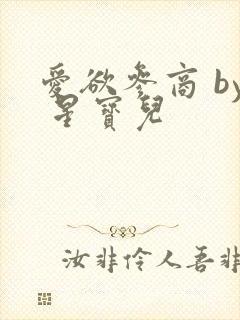 愛欲參商 by
星寶兒
汝非伶人吾非